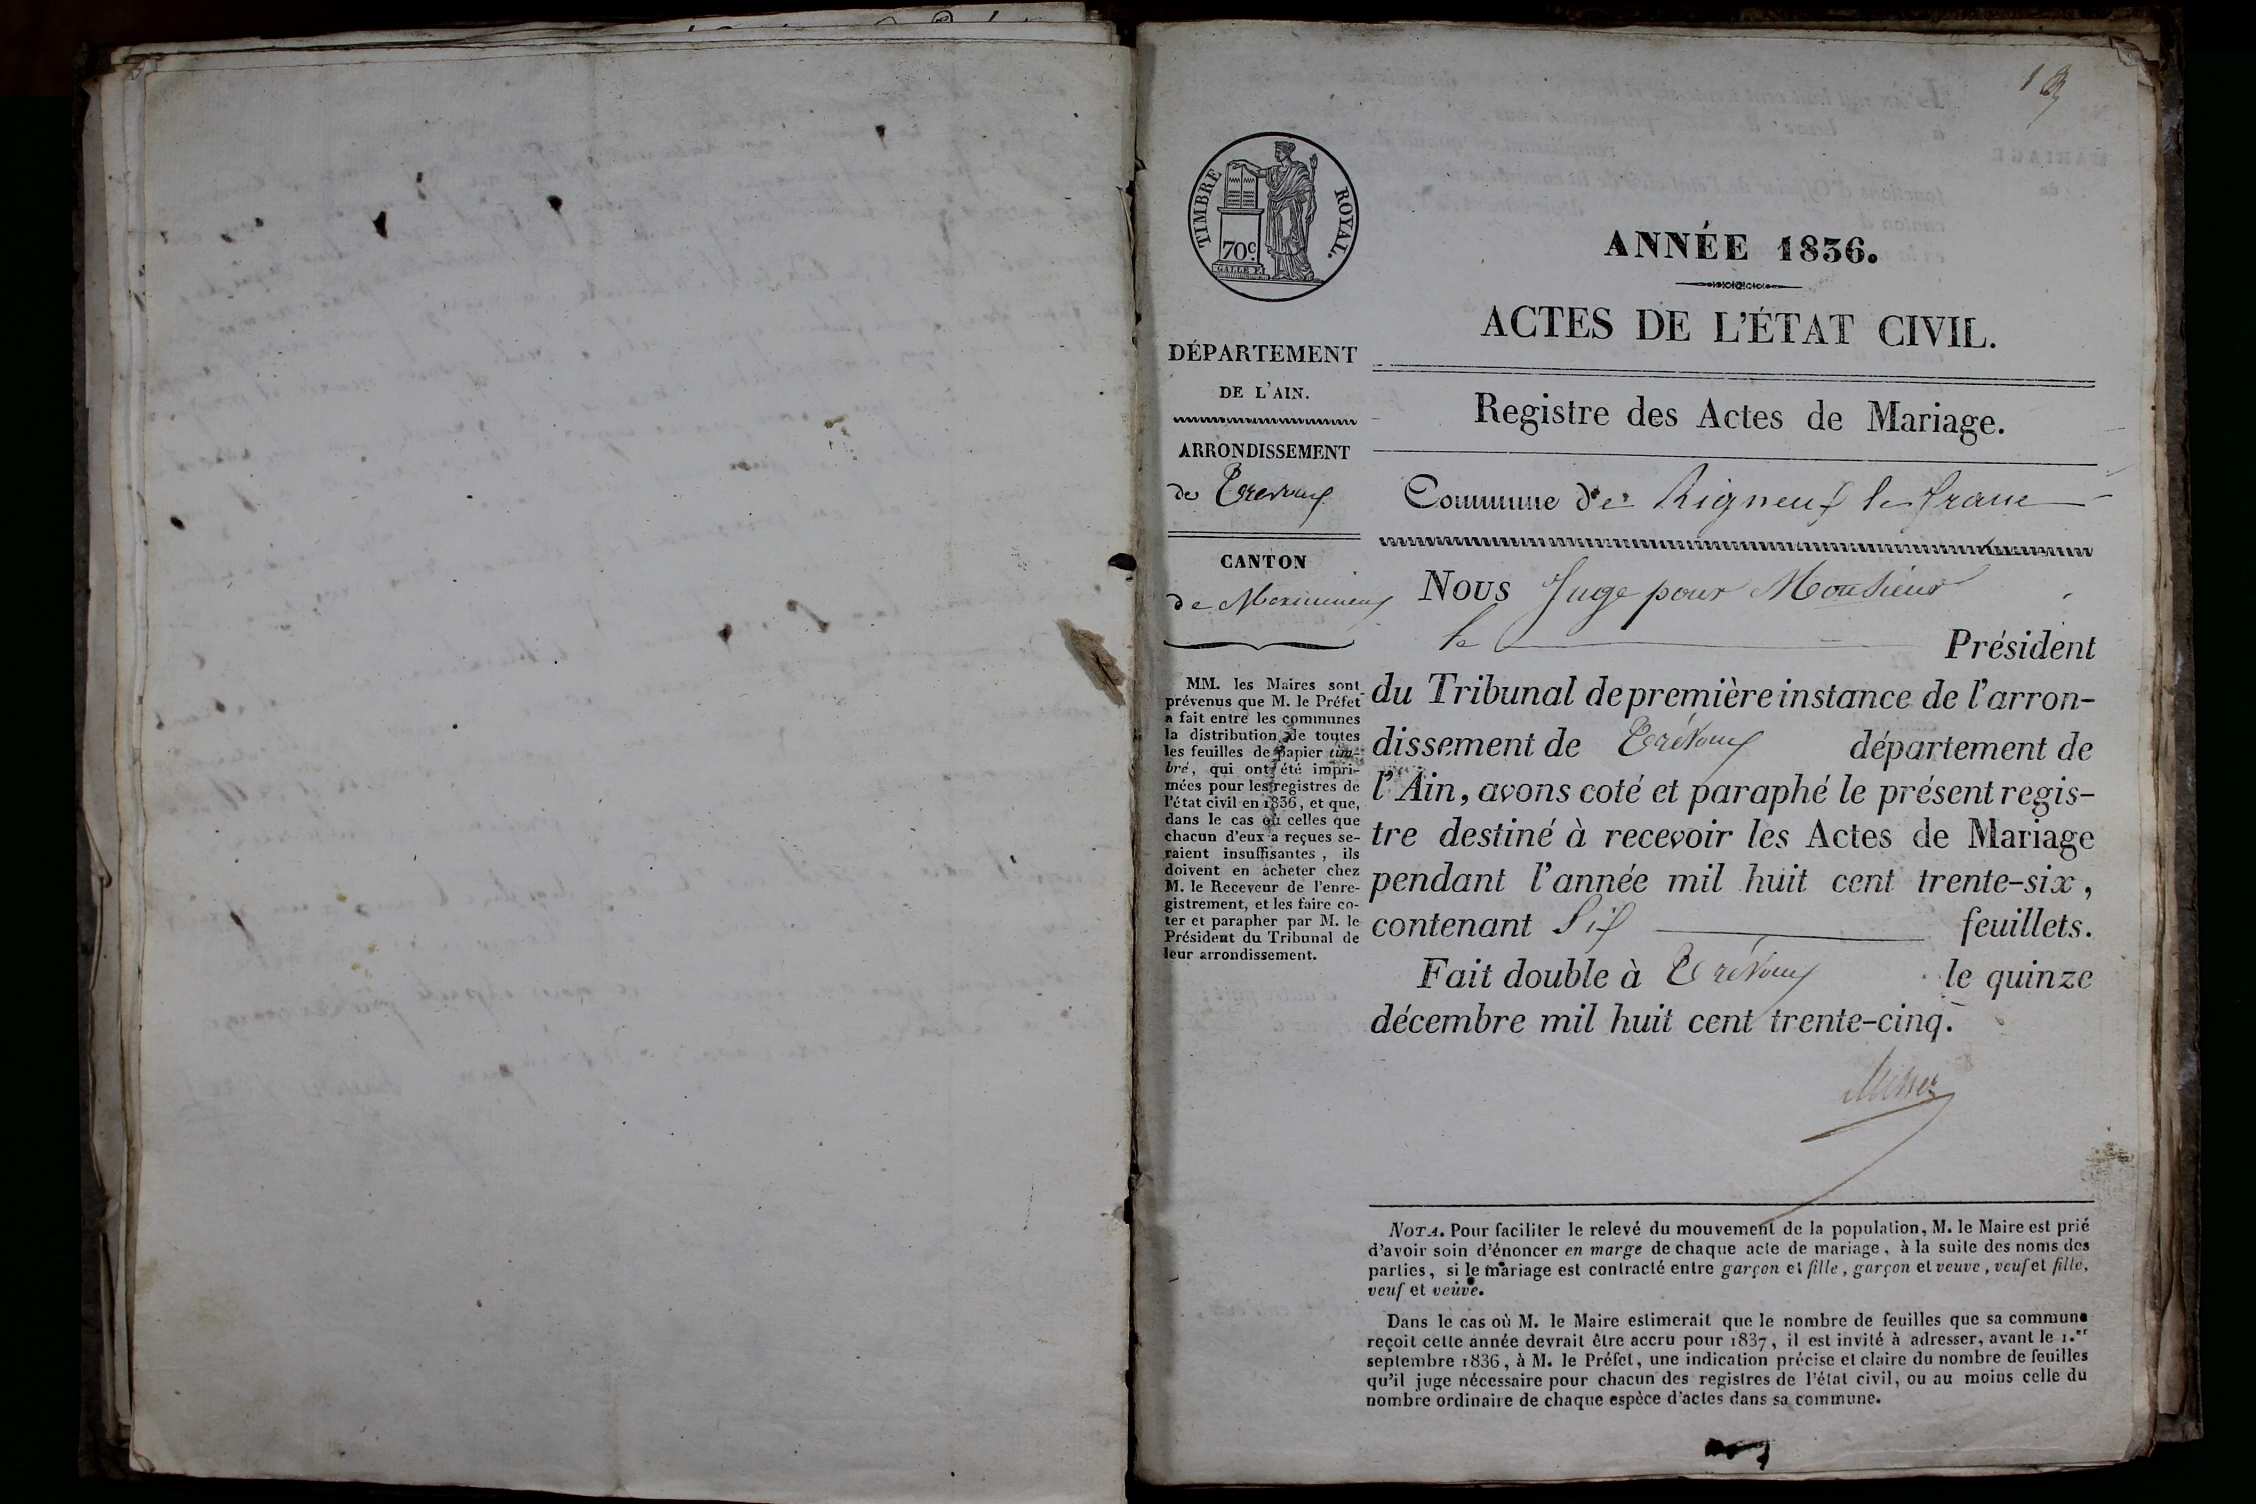 TIMBRE ROYAL.
70c.
GALLE
ANNÉE 1836.
ACTES DE L'ÉTAT CIVIL.
Registre des Actes de Mariage.
Commune de Rigneux le franc
DÉPARTEMENT
DE L'AIN.
ARRONDISSEMENT
de Trevoux
CANTON
de Meximieux
MM. les Maires sont
prévenus que M. le Préfet
a fait entre les communes
la distribution de toutes
les feuilles de papier tim-
bré, qui ont été impri-
mées pour les registres de
l'état civil en 1836, et que,
dans le cas où celles que
chacun d'eux a reçues se-
raient insuffisantes, ils
doivent en acheter chez
M. le Receveur de l'enre-
gistrement, et les faire co-
ter et parapher par M. le
Président du Tribunal de
leur arrondissement.
Nous Juge pour Monsieur
le Président
du Tribunal de première instance de l'arron-
dissement de Trévoux département de
l'Ain, avons coté et paraphé le présent regis-
tre destiné à recevoir les Actes de Mariage
pendant l'année mil huit cent trente-six,
contenant Six feuillets.
Fait double à Trévoux le quinze
décembre mil huit cent trente-cinq.
NOTA. Pour faciliter le relevé du mouvement de la population, M. le Maire est prié
d'avoir soin d'énoncer en marge de chaque acte de mariage, à la suite des noms des
parties, si le mariage est contracté entre garçon et fille, garçon et veuve, veuf et fille,
veuf et veuve.
Dans le cas où M. le Maire estimerait que le nombre de feuilles que sa commune
reçoit cette année devrait être accru pour 1837, il est invité à adresser, avant le 1.er
septembre 1836, à M. le Préfet, une indication précise et claire du nombre de feuilles
qu'il juge nécessaire pour chacun des registres de l'état civil, ou au moins celle du
nombre ordinaire de chaque espèce d'actes dans sa commune.